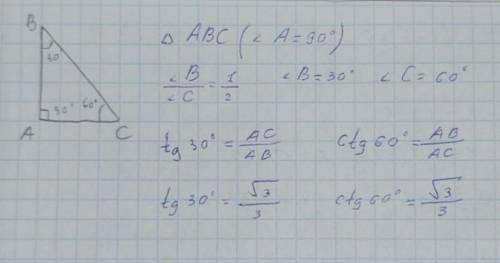 B
30
A 90° 60° C
△ ABC (∠A = 90°)
∠B/∠C = 1/2 ∠B = 30° ∠C = 60°
tg 30° = AC/AB ctg 60° = AB/AC
tg 30° = √3/3 ctg 60° = √3/3